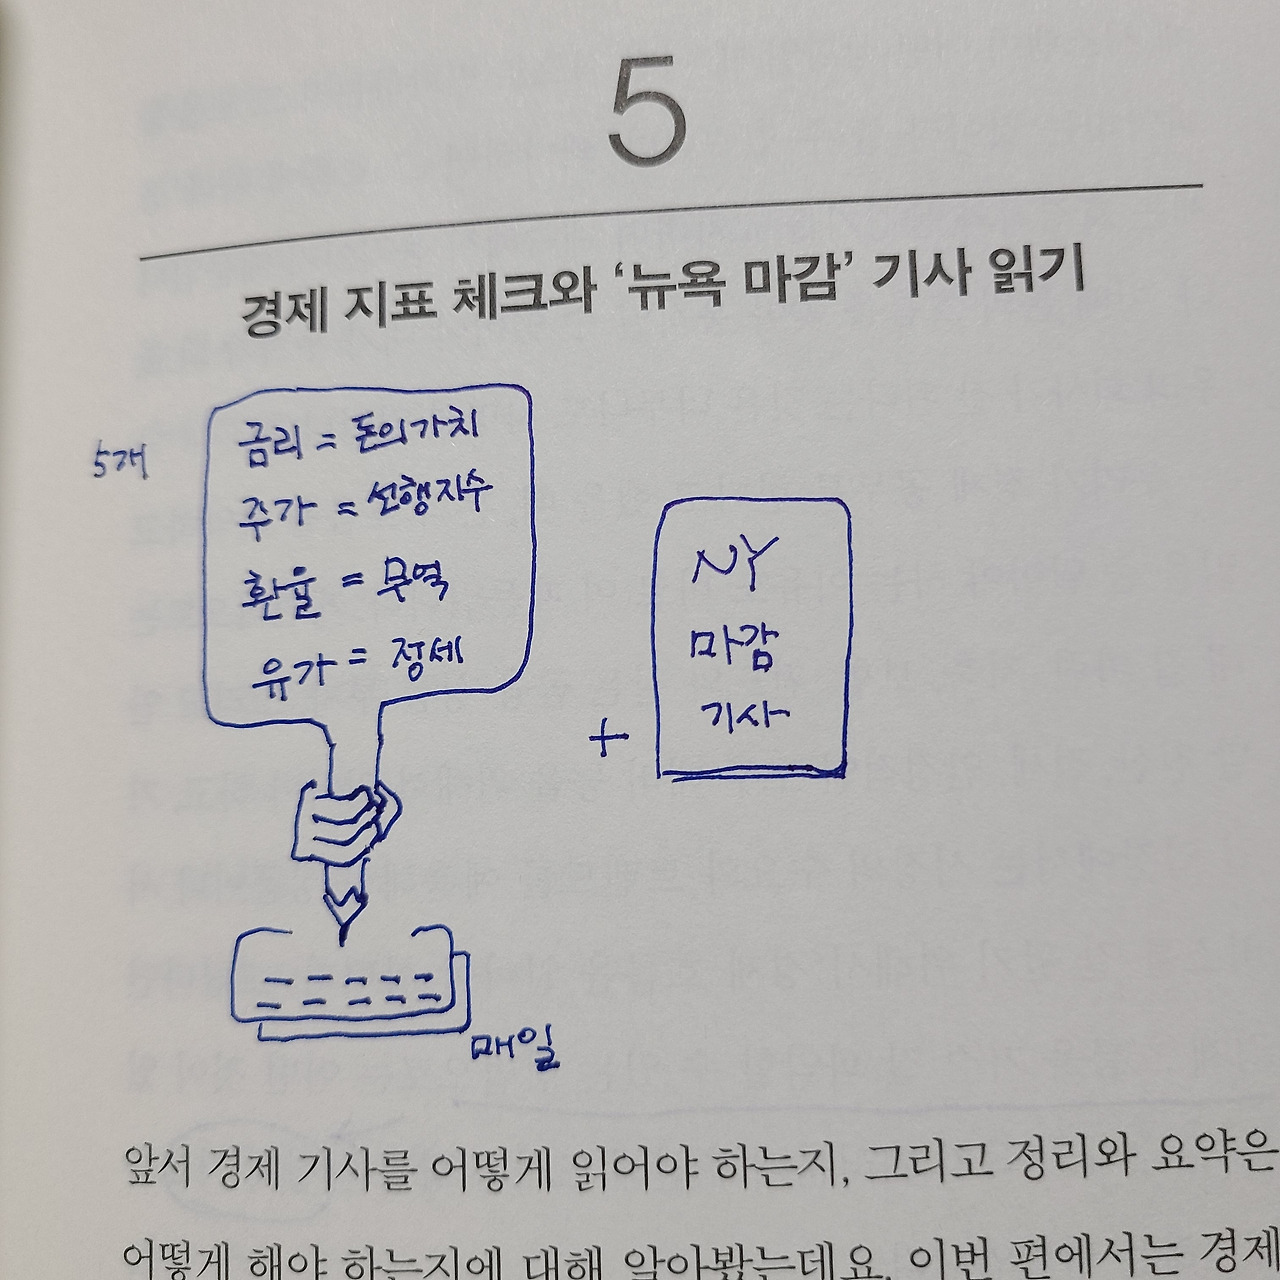 5
경제 지표 체크와 ‘뉴욕 마감’ 기사 읽기
5개
금리 = 돈의가치
주가 = 선행지수
환율 = 무역
유가 = 정세
+
NY
마감
기사
매일
앞서 경제 기사를 어떻게 읽어야 하는지, 그리고 정리와 요약은
어떻게 해야 하는지에 대해 알아봤는데요. 이번 편에서는 경제